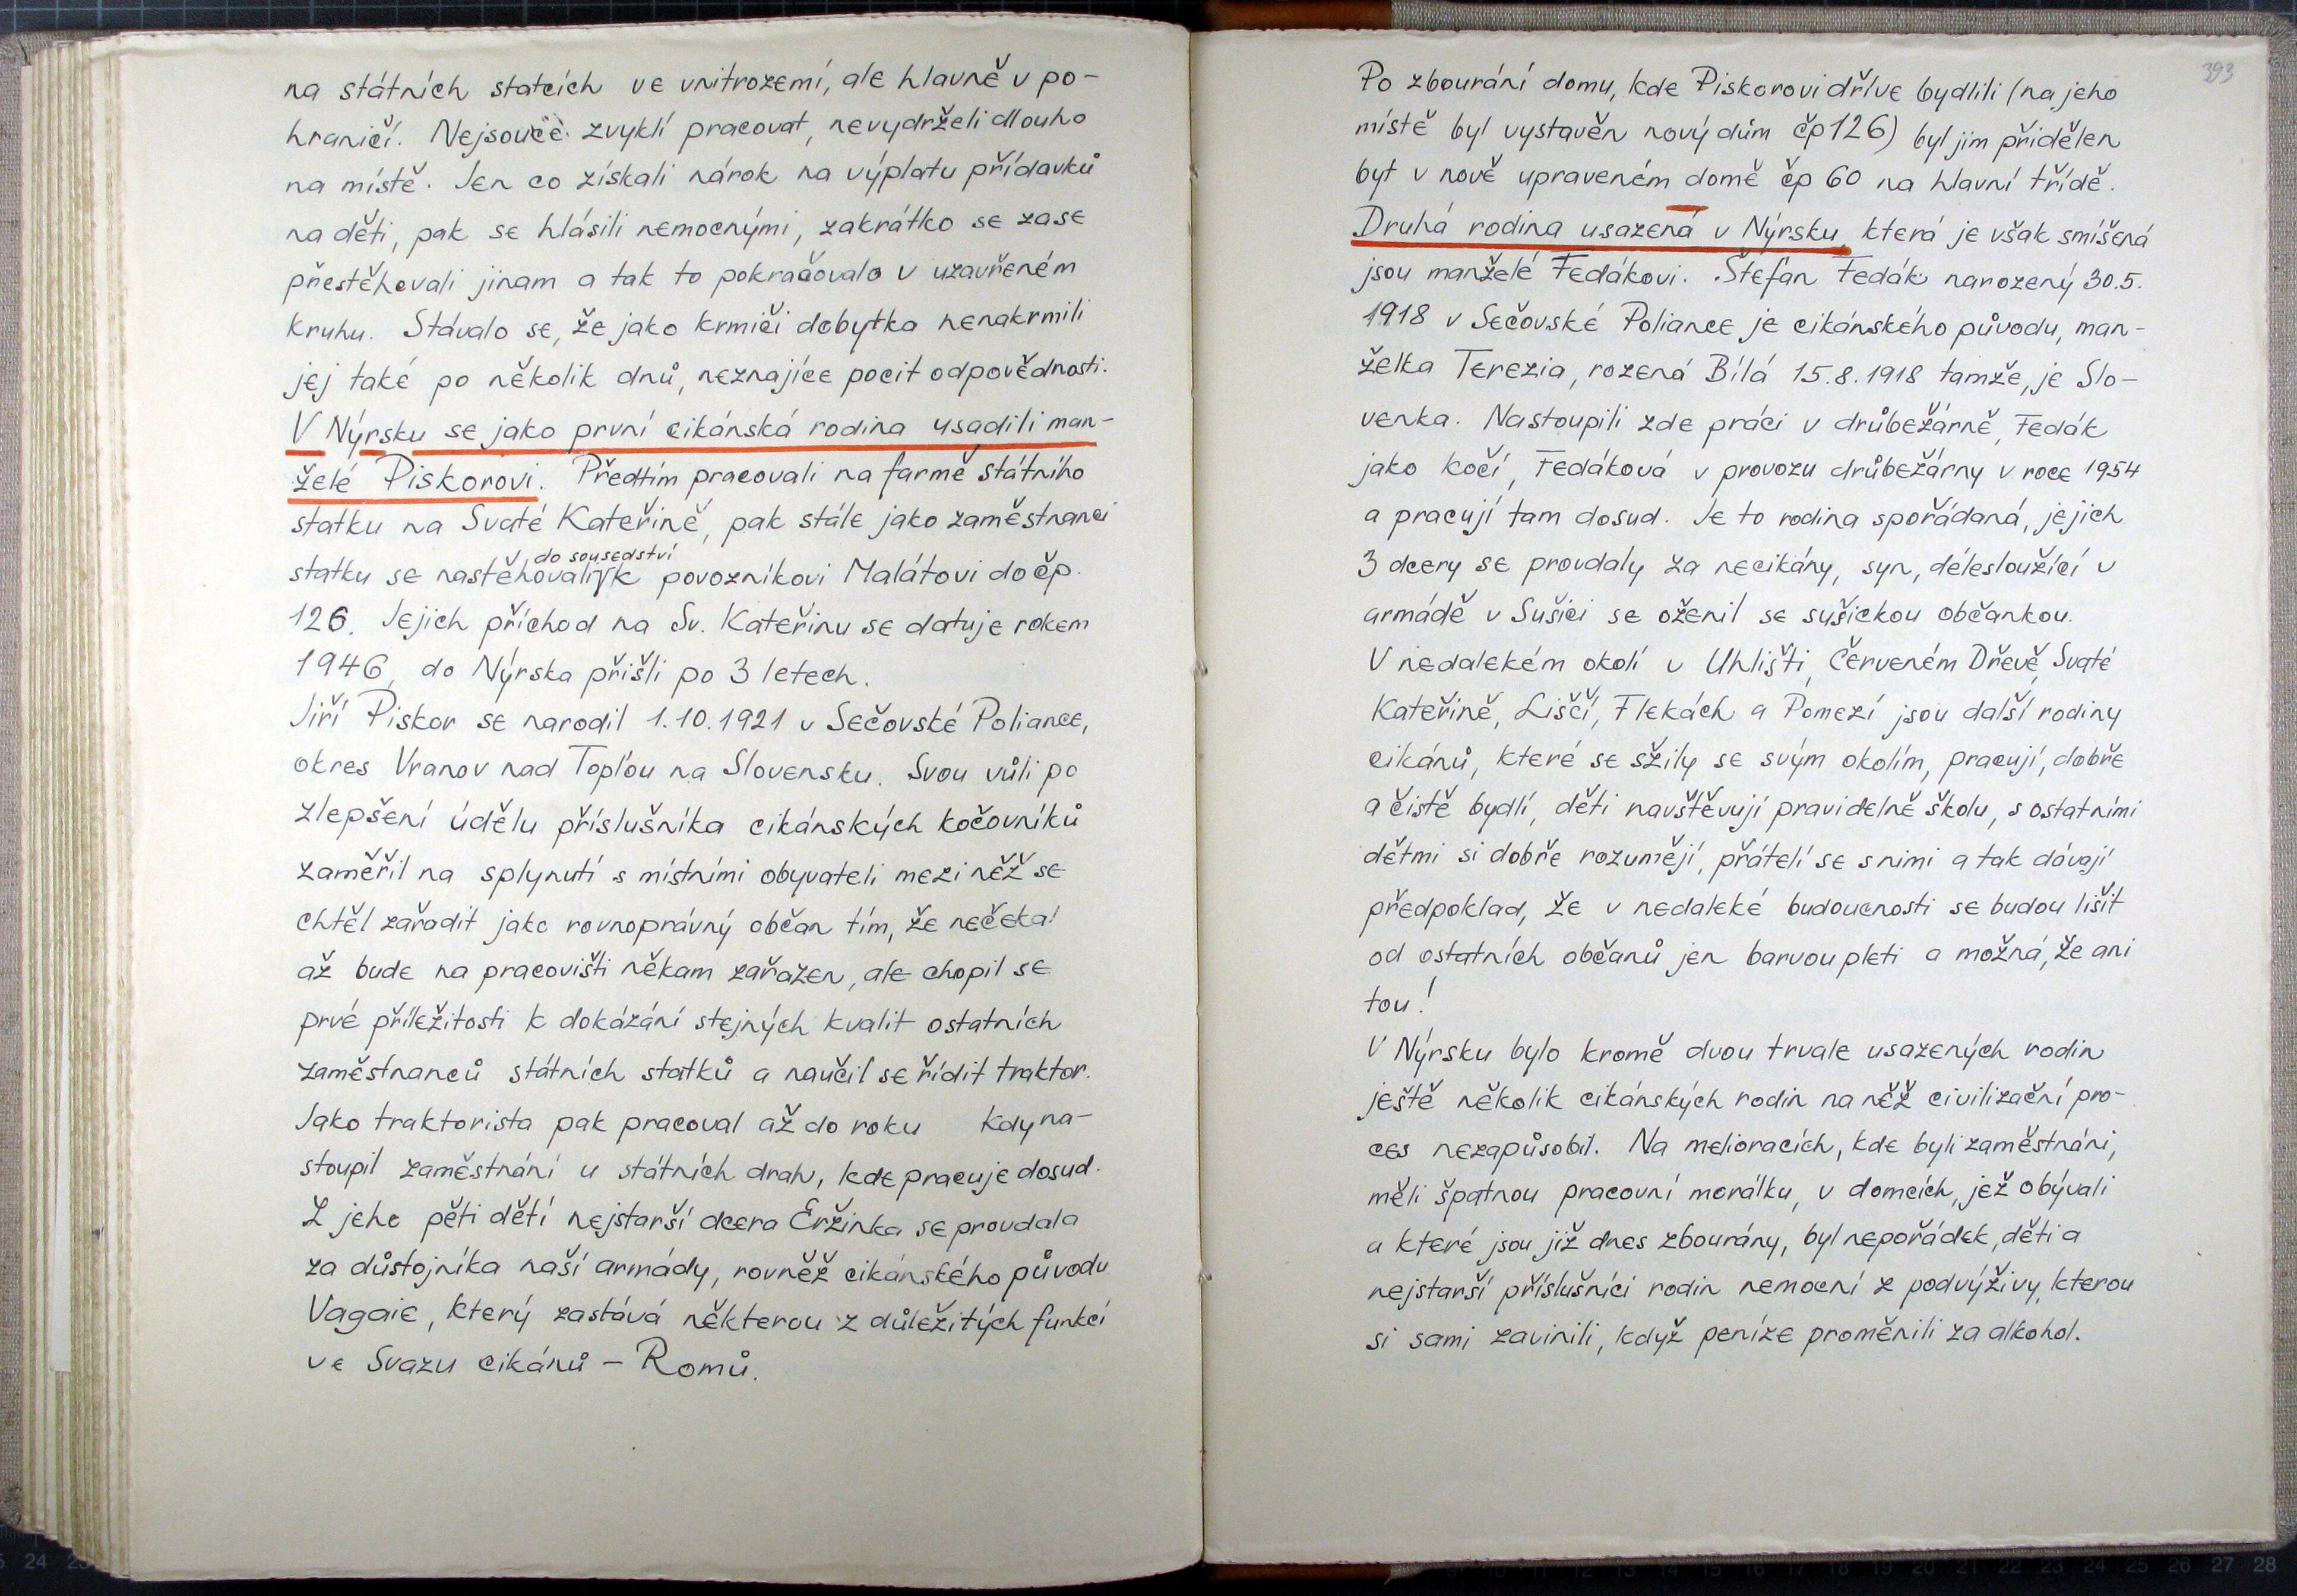 na státních statcích ve vnitrozemí, ale hlavně v po-
hraničí. Nejsouce zvyklí pracovat, nevydrželi dlouho
na místě. Jen co získali nárok na výplatu přídavků
na děti, pak se hlásili nemocnými, zakrátko se zase
přestěhovali jinam a tak to pokračovalo v uzavřeném
kruhu. Stávalo se, že jako krmiči dobytka nenakrmili
jej také po několik dnů, neznajíce pocit odpovědnosti.
V Nýrsku se jako první cikánská rodina usadili man-
želé Piskorovi. Předtím pracovali na farmě státního
statku na Svaté Kateřině, pak stále jako zaměstnanci
do sousedství
statku se nastěhovali k povozníkovi Malátovi do čp.
126. Jejich příchod na Sv. Kateřinu se datuje rokem
1946, do Nýrska přišli po 3 letech.
Jiří Piskor se narodil 1.10.1921 v Sečovské Poliance,
okres Vranov nad Topľou na Slovensku. Svou vůli po
zlepšení údělu příslušníka cikánských kočovníků
zaměřil na splynutí s místními obyvateli mezi něž se
chtěl zařadit jako rovnoprávný občan tím, že nečekal
až bude na pracovišti někam zařazen, ale chopil se
prvé příležitosti k dokázání stejných kvalit ostatních
zaměstnanců státních statků a naučil se řídit traktor.
Jako traktorista pak pracoval až do roku kdy na-
stoupil zaměstnání u státních drah, kde pracuje dosud.
Z jeho pěti dětí nejstarší dcera Eržinka se provdala
za důstojníka naší armády, rovněž cikánského původu
Vagaie, který zastává některou z důležitých funkcí
ve Svazu cikánů – Romů.
393
Po zbourání domu, kde Piskorovi dříve bydlili (na jeho
místě byl vystavěn nový dům čp 126) byl jim přidělen
byt v nově upraveném domě čp 60 na hlavní třídě.
Druhá rodina usazená v Nýrsku, která je však smíšená
jsou manželé Fedákovi. Štefan Fedák narozený 30.5.
1918 v Sečovské Poliance je cikánského původu, man-
želka Terezia, rozená Bílá 15.8.1918 tamže, je Slo-
venka. Nastoupili zde práci v drůbežárně, Fedák
jako kočí, Fedáková v provozu drůbežárny v roce 1954
a pracují tam dosud. Je to rodina spořádaná, jejich
3 dcery se provdaly za necikány, syn, délesloužící v
armádě v Sušici se oženil se sušickou občankou.
V nedalekém okolí v Uhlišti, Červeném Dřevě, Svaté
Kateřině, Liščí, Flekách a Pomezí jsou další rodiny
cikánů, které se sžily se svým okolím, pracují, dobře
a čistě bydlí, děti navštěvují pravidelně školu, s ostatními
dětmi si dobře rozumějí, přátelí se s nimi a tak dávají
předpoklad, že v nedaleké budoucnosti se budou lišit
od ostatních občanů jen barvou pleti a možná, že ani
tou!
V Nýrsku bylo kromě dvou trvale usazených rodin
ještě několik cikánských rodin na něž civilizační pro-
ces nezapůsobil. Na melioracích, kde byli zaměstnáni,
měli špatnou pracovní morálku, v domcích, jež obývali
a které jsou již dnes zbourány, byl nepořádek, děti a
nejstarší příslušníci rodin nemocní z podvýživy, kterou
si sami zavinili, když peníze proměnili za alkohol.